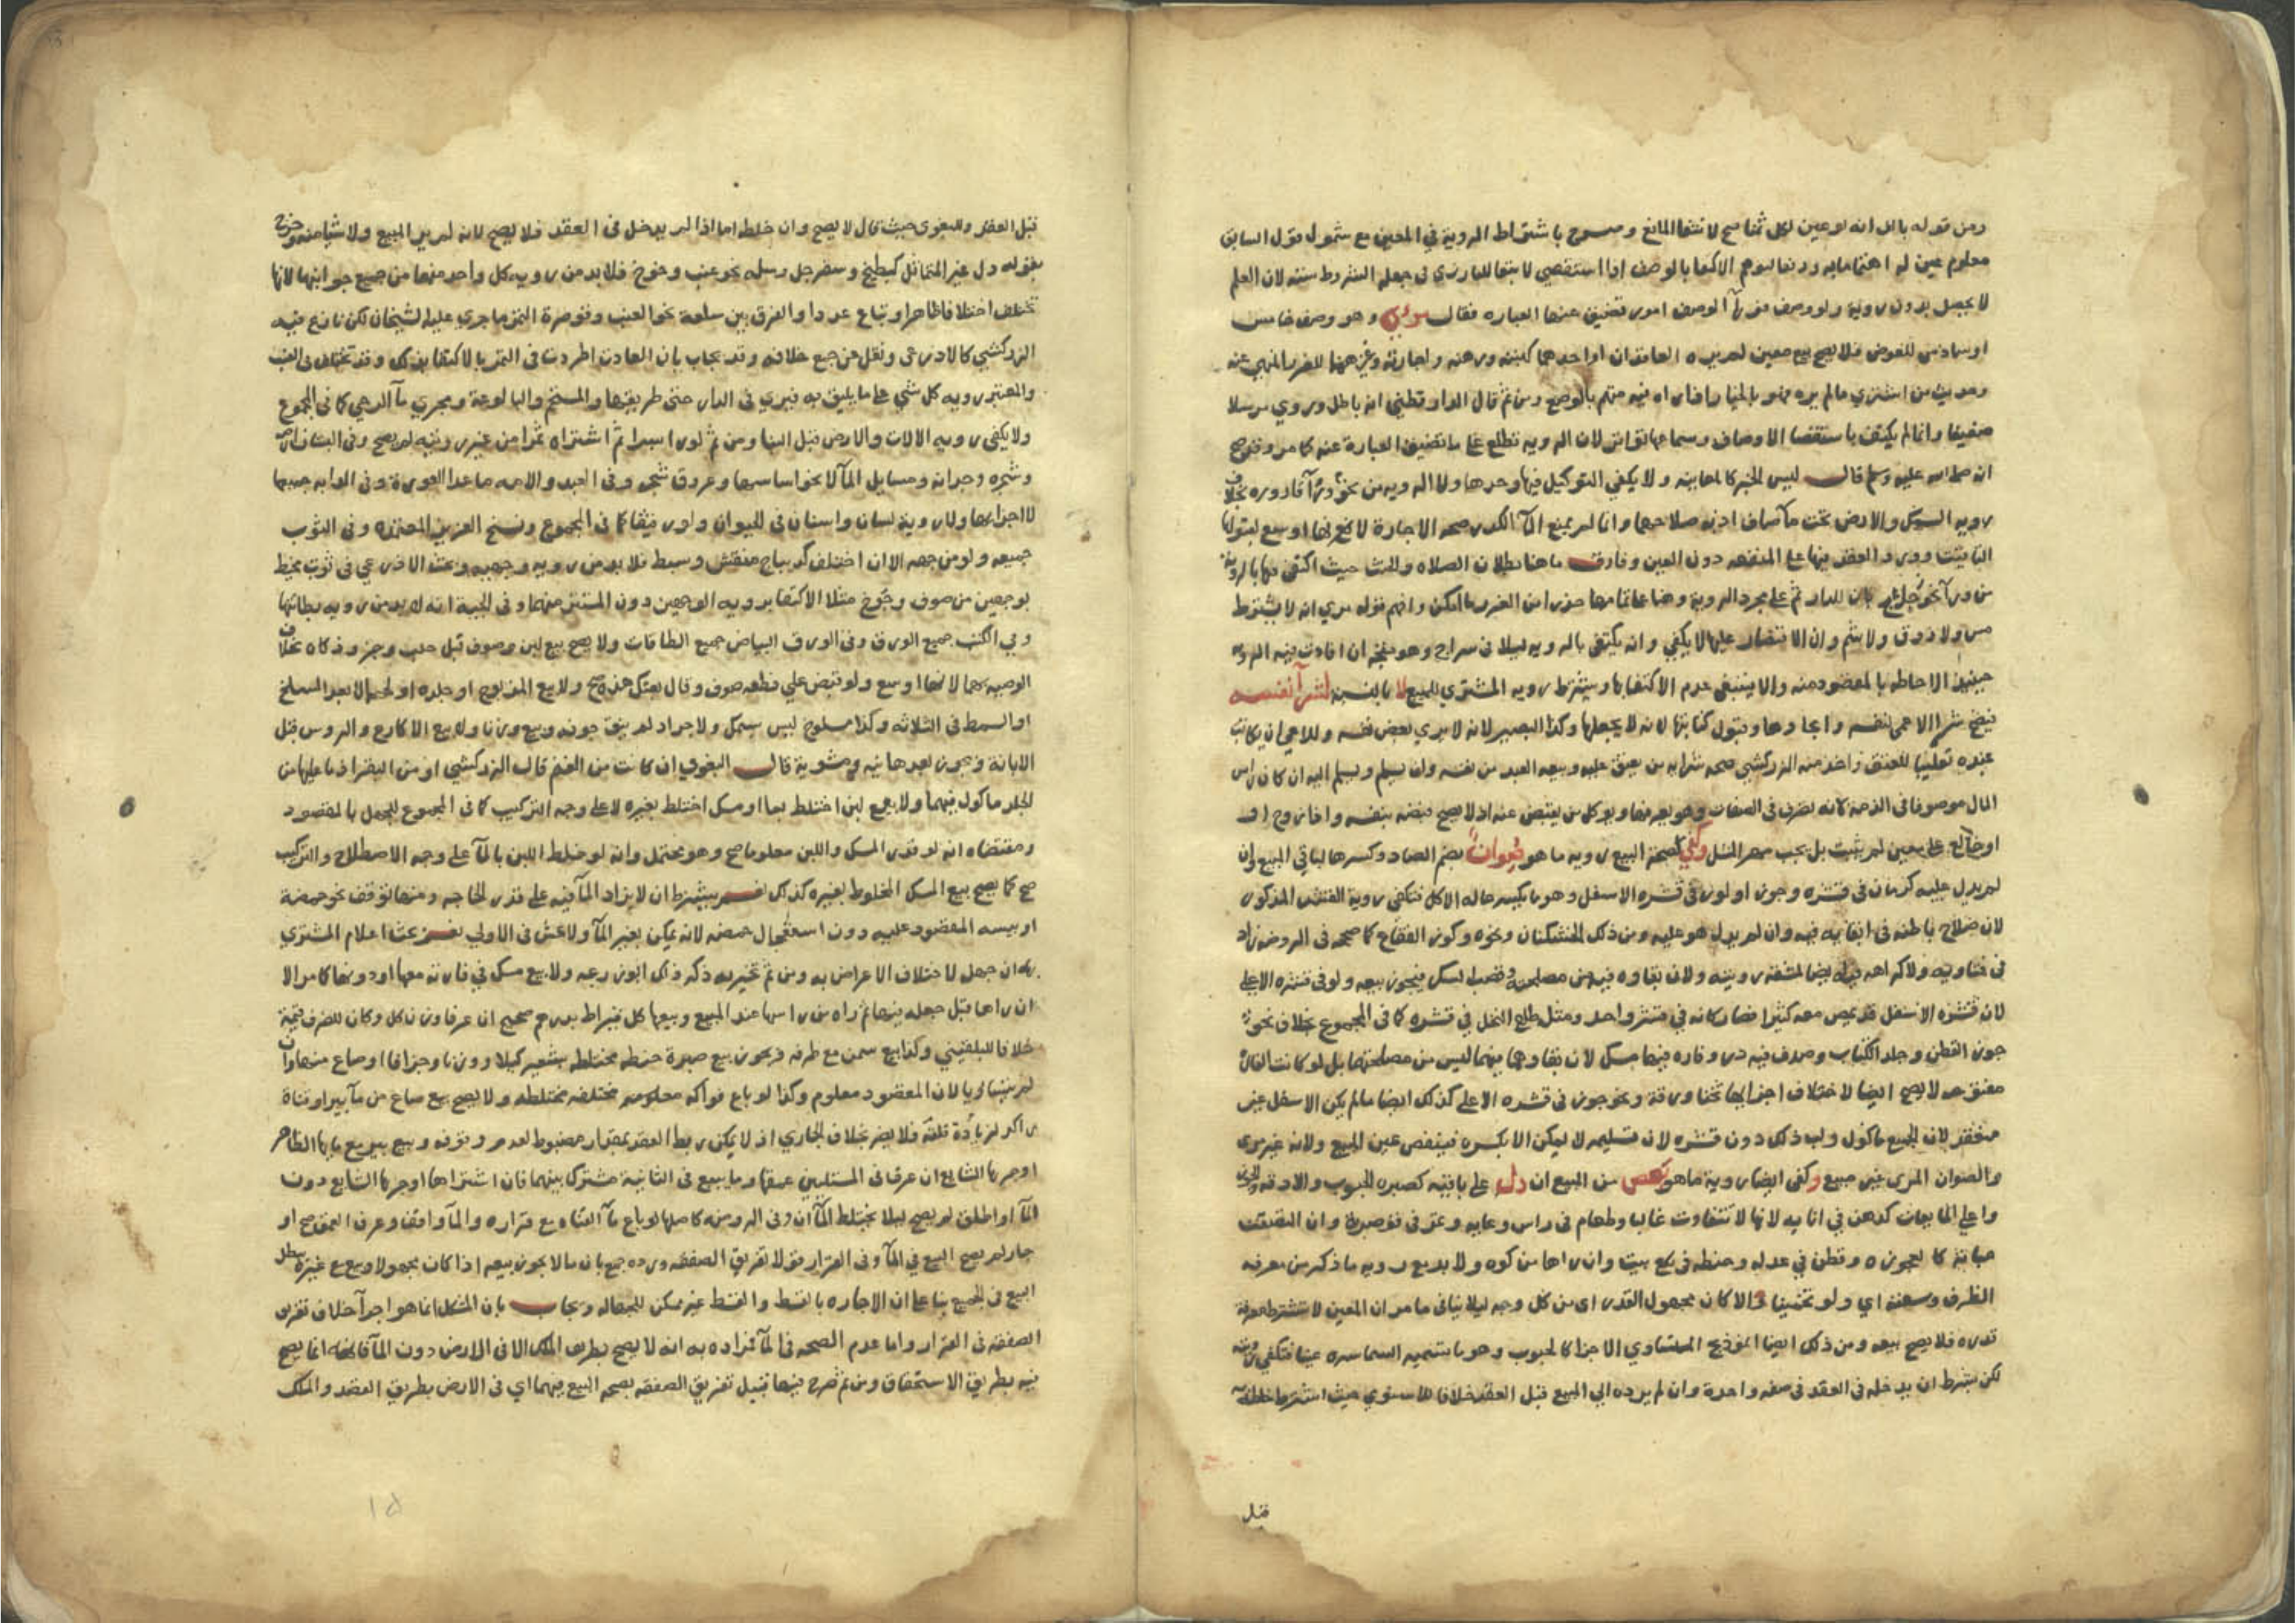 ومن قوله بالل انه لو عين لكل ثمنا صح لانتفا المانع وصرح باشتراط الروية في المعين مع شمول قول السابق
معلوم عين له اهتماما به ودفعا لتوهم الاكتفا بالوصف اذا استقصي لا تبعا للبارزي في جعله الشروط ستة لان العلم
لا يحصل بدون روية ولو وصف فورآ الوصف امور تضيق عنها العبارة فقال وهو وصف خامس
او سادس للعوض فلا يصح بيع معين لم يره العاقدان او احدهما كهبته ورهنه واجارته ونحوها للغرر المنهي عنه
وحديث من اشترى ما لم يره فهو بالخيار اذا راه فيه متهم بالوضع ومن ثم قال الدارقطني انه باطل وروي مرسلا
ضعيفا وانما لم يكتف باستقصا الاوصاف وسماعها تواترا لان الروية تطلع على ما تضيق العبارة عنه كما مر وقد صح
انه صلى الله عليه وسلم قال ليس الخبر كالمعاينة ولا يكفي التوكيل فيها وحدها ولا الروية من نحو ورآ قارورة بخلاف
روية السمك والارض تحت مآ صاف اذ به صلاحهما وانما لم يمنع المآ الكدر صحة الاجارة لانها اوسع لقبولها
التاقيت وورود العقد فيها على المنفعة دون العين وفارق ما هنا بطلان الصلاة والحنث حيث اكتفي فيها بالروية
من ورآ نحو زجاج بان المدار ثم على مجرد الروية وهنا على تمامها حذرا من الغرر ما امكن وافهم قوله مري انه لا يشترط
مس ولا ذوق ولا شم وان الاقتصار عليها لا يكفي وانه يكتفي بالروية ليلا في سراج وهو متجه ان افادت فيه الروية
حينيذ الاحاطة بالمقصود منه والا فينبغي عدم الاكتفا بها ويشترط روية المشتري للمبيع لا بالنسبة لشرآ نفسه
فيصح شرا الاعمى لنفسه وايجارها وقبول كتابتها لانه لا يجهلها وكذا البصير لانه لا يري بعض نفسه وللاعمى ان يكاتب
عبده تغليبا للعتق واخذ منه الزركشي صحة شرايه من يعتق عليه وبيعه العبد من نفسه وان يسلم ويسلم اليه ان كان راس
المال موصوفا في الذمة لانه يعرف الصفات وهو يعرفها ويوكل من يقبض عنه اذ لا يصح قبضه بنفسه واذا زوج او
او خالع على معين لم يثبت بل يجب مهر المثل وكفي لصحة البيع روية ما هو صوان بضم الصاد وكسرها لباقي المبيع وان
لم يدل عليه كرمان في قشره وجوز او لوز في قشره الاسفل وهو ما يكسر حالة الاكل فتكفي روية القشر المذكور
لان صلاح باطنه في ابقايه فيه وان لم يدل هو عليه ومن ذلك الخشكنان ونحوه وكوز الفقاع كما صححه في الروضة زاد
في فتاويه ولا كراهة فيه ايضا لمشقة رويته ولان بقاه فيه من مصلحته وقصب السكر فيجوز بيعه ولو في قشره الاعلى
لان قشره الاسفل قد يمص معه كثيرا فصار كانه في قشر واحد ومثل طلع النخل في قشره كما في المجموع بخلاف نحو
جوز القطن وجلد الكتاب وصدف فيه در وفارة فيها مسك لان بقاوها فيها ليس من مصلحتها بل لو كانت الفارة
مفتوحه لا يصح ايضا لاختلاف اجزايها ثخنا ورقة ونحو جوز في قشره الاعلى كذلك ايضا ما لم يكن الاسفل غير
منعقد لان الجميع ماكول ولب ذلك دون قشره لان تسليمه لا يمكن الا بكسره فينقص عين المبيع ولانه غير مري
والصوان المري غير مبيع وكفي ايضا روية ما هو بعض من المبيع ان دل على باقيه كصبرة الحبوب والادقة
واعلى المايعات كدهن في انايه لانها لا تتفاوت غالبا وطعام في راس وعايه وتمر في قوصرة وان التصقت
حباته كالعجوة وقطن في عدله وحنطة في بيت وان راها من كوه ولا بد مع روية ما ذكر من معرفة
الظرف وسعته اي ولو تخمينا والا كان مجهول القدر اي من كل وجه ليلا ينافي ما مر ان المعين لا تشترط معرفة
قدره فلا يصح بيعه ومن ذلك ايضا انموذج المتساوي الاجزا كالحبوب وهو ما تسميه السماسرة عينا فتكفي رويته
لكن يشترط ان يدخله في العقد في صفقة واحدة وان لم يرده الى المبيع قبل العقد خلافا للاسنوي حيث اشترط خلطه
قبل
قبل العقد وللبغوي حيث قال لا يصح وان خلطه اما اذا لم يدخل في العقد فلا يصح لانه لم ير المبيع ولا شيا منه وخرج
بقوله دل غير المتماثل كبطيخ وسفرجل وسلة نحو عنب وخوخ فلا بد من روية كل واحد منها من جميع جوانبها لانها
تختلف اختلافا ظاهرا وتباع عددا والفرق بين سلة نحو العنب وقوصرة التمر ما جرى عليه الشيخان لكن نازع فيه
الزركشي كالاذرعي ونقل عن جمع خلافه وقد يجاب بان العادة اطردت في التمر بالاكتفا بذلك وقد تختلف في العنب
والمعتبر روية كل شي على ما يليق به فيري في الدار حتى طريقها والمستحم والبالوعة ومجرى مآ الرحى كما في المجموع
ولا يكفي روية الالات والارض قبل البنا ومن ثم لو راى بسرا ثم اشتراه تمرا من غير رويته لم يصح وفي البستان ارضه
وشجره وجدرانه ومسايل المآ لا نحو اساسها وعروق شجره وفي العبد والامة ما عدا العورة وفي الدابة جميعها
لا اجزايها ولا روية لسان واسنان في الحيوان ولو رقيقا كما في المجموع ونسخ العزيز المعتمدة وفي الثوب
جميعه ولو من جهة الا ان اختلف كديباج منقش وبسط فلا بد من روية وجهيه وبحث الاذرعي في ثوب يحيط
بوجهين من صوف وجوخ مثلا الاكتفا بروية الوجهين دون المستتر منهما وفي الجبة انه لا بد من روية بطانتها
وفي الكتب جميع الورق وفي الورق البياض جميع الطاقات ولا يصح بيع لبن وصوف قبل حلب وجز وذكاة بخلاف
الوصية بهما لانها اوسع ولو قبض على قطعة صوف وقال بعتك هذه صح ولا بيع المذبوح او جلده او لحمه الا بعد السلخ
او السمط في الثلاثة وكذا مسلوخ ليس بسمك ولا جراد لم ينق جوفه وبيع وزنا ولا بيع الاكارع والروس قبل
الابانة ويجوز بعدها نيه ومشوية قال البغوي ان كانت من الغنم قال الزركشي او من البقر اذ ما عليها من
الجلد ماكول فيهما ولا بيع لبن اختلط بما او مسك اختلط بغيره لا على وجه التركيب كما في المجموع للجهل بالمقصود
ومقتضاه انه لو قدر المسك واللبن معلوما صح وهو محتمل وانه لو خلط اللبن بالمآ على وجه الاصطلاح والتركيب
صح كما يصح بيع المسك المخلوط بغيره كذلك نعم يشترط ان لا يزاد المآ فيه على قدر الحاجة ومنها توقف نحو حموضة
او يبسه المقصود عليه دون استعجال حمضه لانه يمكن بغير المآ ولا غش في الاولى نعم بحث اعلام المشتري
به ان جهل لاختلاف الاغراض به ومن ثم تخيير به ذكر ذلك ابو زرعة ولا بيع مسك في فارته معها او دونها كما مر الا
ان راها قبل جعله فيها ثم راه من راسها عند المبيع وبيعها كل قيراط بدرهم صحيح ان عرفا وزن كل وكان للظرف قيمة
خلافا للبلقيني وكذا بيع سمن مع ظرفه ويجوز بيع صبرة حنطة مختلطة بشعير كيلا ووزنا وجزافا او صاع منها وان
لم يتساويا لان المقصود معلوم وكذا لو باع فواكه معلومة مختلفة مختلطة ولا يصح بيع صاع من مآ بير او قناة
راكد لزيادة قلته فلا يضر بخلاف الجاري اذ لا يمكن ربط العقد بمقدار مضبوط لعدم وقوفه وبيع بير مع مايها الظاهر
او جزيها الشايع ان عرفا في المسئلتين عمقها وما ينبع في الثانية مشترك بينهما فان اشتراها او جزيها الشايع دون
المآ او اطلق لم يصح ليلا يختلط المآان وفي الروضة كاصلها لو باع مآ القناة مع قراره والمآ واقف وعرف العمق صح او
جار لم يصح البيع في المآ وفي القرار قولا تفريق الصفقة ورده جمع بان ما لا يجوز بيعه اذا كان مجهولا وبيع مع غيره بطل
البيع في الجميع بنا على ان الاجازة بالقسط والقسط غير ممكن للجهالة ويجاب بان المشكل انما هو اجرآ خلاف تفريق
الصفقة في القرار واما عدم الصحة في المآ فمراده به انه لا يصح بطريق الملك الا في الارض دون المآ فانه انما يصح
فيه بطريق الاستحقاق ومن ثم صرح فيها قبيل تفريق الصفقة بصحة البيع فيهما اي في الارض بطريق العقد والملك